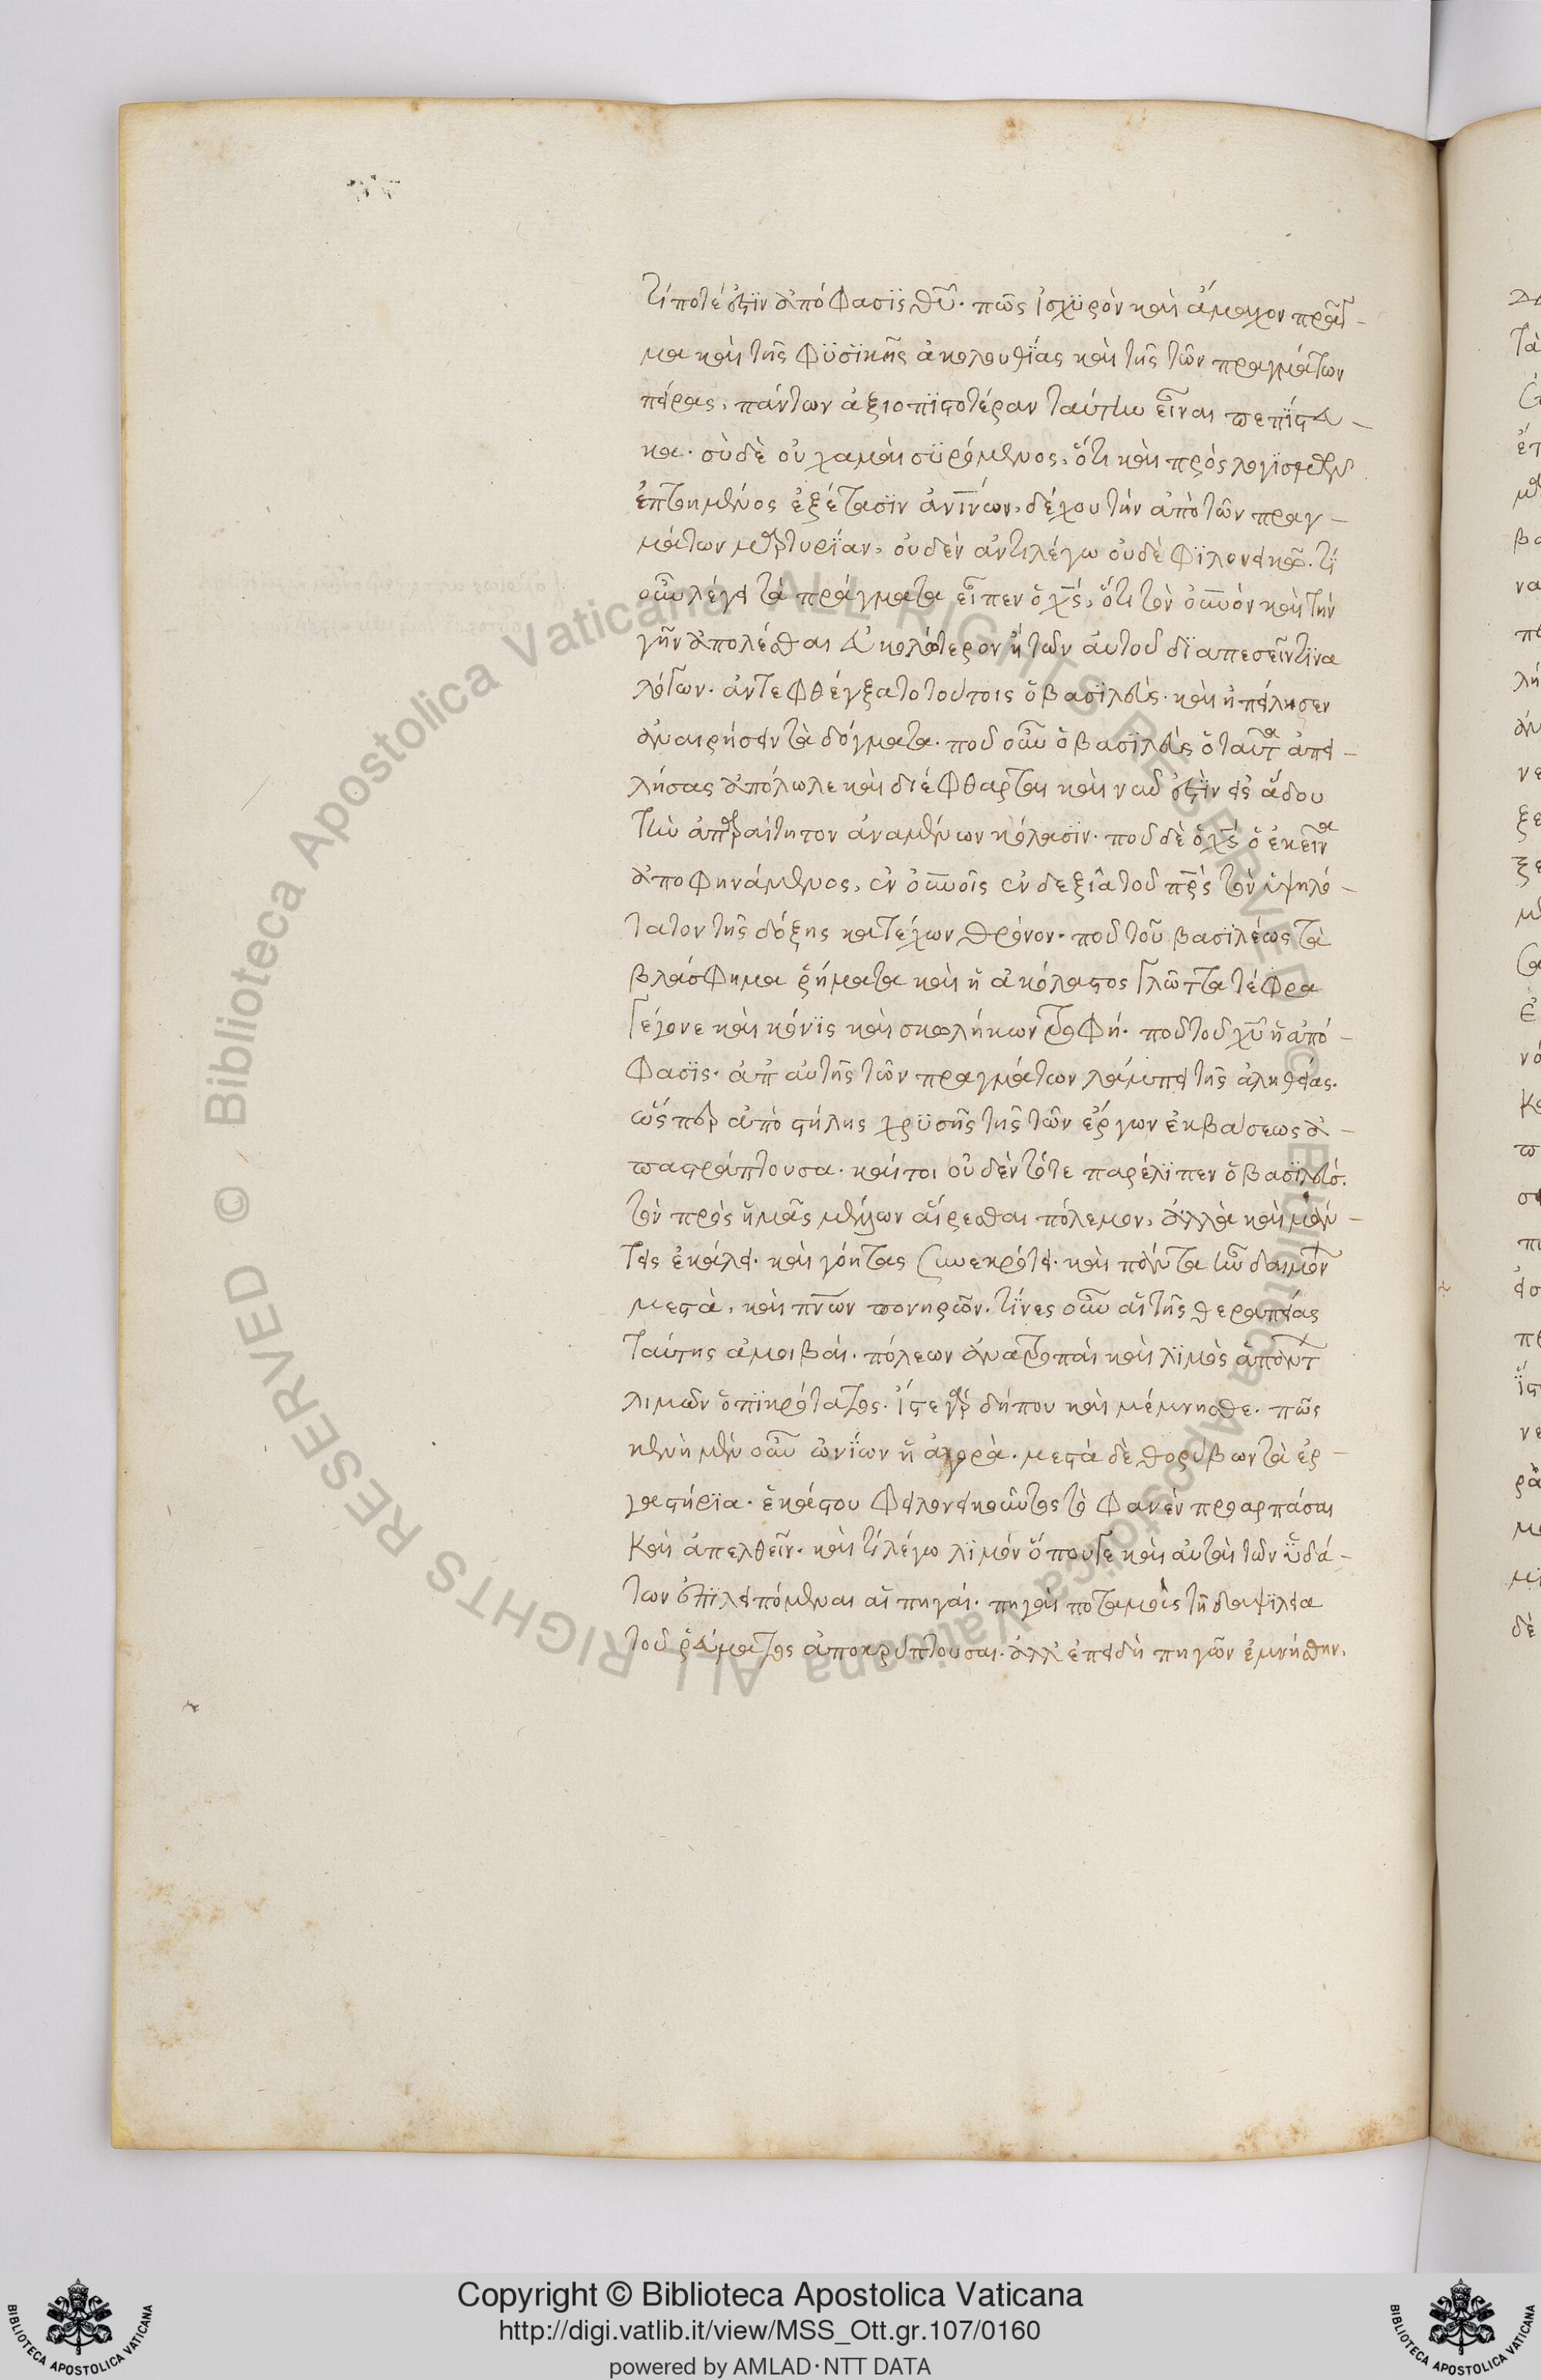 τί ποτέ ἐστϊν ἀπόφασϊς θῦ. πῶς ἰσχϋρὸν καὶ ἄμαχον πρᾶγ-
μα καὶ τῆς φϋσϊκῆς ἀκολουθΐας καὶ τῆς τῶν πραγμάτων
πείρας, πάντων ἀξιοπϊστοτέραν ταύτην εἶναι πεπΐστευ-
κα. σὺ δὲ οὐ χαμαὶ σϋρόμενος, ὅτι καὶ πρὸς λογϊσμῶν
ἐπτοημένος ἐξέτασϊν ἀνϊνίων, δέχου τὴν ἀπὸ τῶν πραγ-
μάτων μαρτυρΐαν, οὐδὲν ἀντιλέγω οὐδὲ φϊλονεικῶ. τΐ
οὖν λέγει τὰ πράγματα εἶπεν ὁ χς, ὅτι τὸν οὐνὸν καὶ τὴν
γῆν ἀπολέσθαι εὐκολώτερον ἢ τῶν αὐτοῦ δϊαπεσεῖν τϊνα
λόγων. ἀντεφθέγξατο τούτοις ὁ βασϊλεύς. καὶ ἠπείλησεν
ἀναιρήσειν τὰ δόγματα. ποῦ οὖν ὁ βασϊλεὺς ὁ ταῦτα ἀπει-
λήσας ἀπόλωλε καὶ διέφθαρται καὶ νῦν ἐστϊν εἰς ἅδου
τὴν ἀπαραίτητον ἀναμένων κόλασϊν. ποῦ δὲ ὁ χς ὁ ἐκεῖνα
ἀποφηνάμενος, ἐν οὐνοῖς ἐν δεξϊᾶ τοῦ πρς τὸν ὑψηλό-
τατον τῆς δόξης κατέχων θρόνον. ποῦ τοῦ βασϊλέως τὰ
βλάσφημα ῥήματα καὶ ἡ ἀκόλαστος γλῶττα τέφρα
γέγονε καὶ κόνϊς καὶ σκωλήκων τροφή. ποῦ τοῦ χῦ ἡ ἀπό-
φασϊς. ἀπ αὐτῆς τῶν πραγμάτων λάμπει τῆς ἀληθείας.
ὥσπερ ἀπὸ στήλης χρϋσῆς τῆς τῶν ἔργων ἐκβάσεως ἀ-
παστράπτουσα. καίτοι οὐδὲν τότε παρέλϊπεν ὁ βασϊλεύς.
τὸν πρὸς ἡμᾶς μέλλων αἵρεσθαι πόλεμον, ἀλλὰ καὶ μάν-
τεις ἐκάλει. καὶ γόητας συνεκρότει. καὶ πάντα ἦν δαιμόνων
μεστὰ, καὶ πνων πονηρῶν. τΐνες οὖν αἱ τῆς θεραπείας
ταύτης ἀμοιβαί. πόλεων ἀνατροπαὶ καὶ λϊμὸς ἁπάντων
λιμῶν ὁ πϊκρότατος. ἴστε γὰρ δήπου καὶ μέμνησθε. πῶς
κενὴ μὲν οὖν ὠνΐων ἡ ἀγορὰ. μεστὰ δὲ θορύβων τὰ ἐρ-
γαστήρϊα. ἑκάστου φιλονεικοῦντος τὸ φανὲν προαρπάσαι
καὶ ἀπελθεῖν. καὶ τί λέγω λϊμὸν ὅπου γε καὶ αὐταὶ τῶν ὑδά-
των ἐπϊλείπόμεναι αἱ πηγαί. πηγαὶ ποταμοὺς τῆ δαψϊλεία
τοῦ ῥεύματος ἀποκρύπτουσαι. ἀλλ ἐπειδὴ πηγῶν ἐμνήσθην.
Copyright © Biblioteca Apostolica Vaticana
http://digi.vatlib.it/view/MSS_Ott.gr.107/0160
powered by AMLAD·NTT DATA